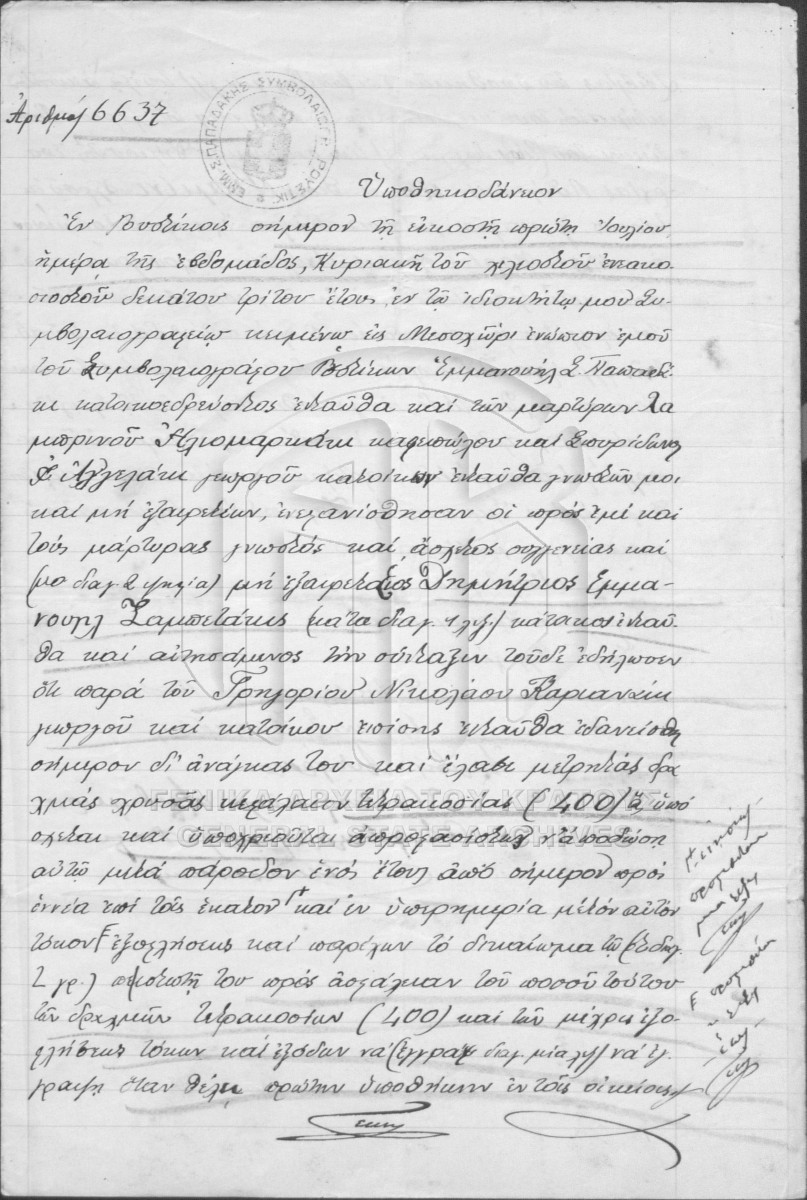 Ἀριθμός 6637
ΕΜΜ. Σ. ΠΑΠΑΔΑΚΗΣ ΣΥΜΒΟΛΑΙΟΓΡ. ΡΟΥΣΤΙΚ
Ὑποθηκοδάνειον
Ἐν Ρουστίκοις σήμερον τῇ εἰκοστῇ πρώτῃ Ἰουλίου
ἡμέρᾳ τῆς ἑβδομάδος, Κυριακῇ τοῦ χιλιοστοῦ ἐννακο-
σιοστοῦ δεκάτου τρίτου ἔτους ἐν τῷ ἰδιοκτήτῳ μου Συ-
μβολαιογραφείῳ κειμένῳ εἰς Μεσοχώρι ἐνώπιον ἐμοῦ
τοῦ Συμβολαιογράφου Ρουστίκων Ἐμμανουήλ Σ. Παπαδά-
κι κατοικοεδρεύοντος ἐνταῦθα καὶ τῶν μαρτύρων Λα
μπρινοῦ Ἁλιομαρκάκι καφεπώλου καὶ Σπυρίδωνος
Ἀγγελάκι γεωργοῦ κατοίκων ἐνταῦθα γνωστῶν μοι
καὶ μή ἐξαιρετέων, ἐνεφανίσθησαν οἱ πρός ἐμέ καὶ
τούς μάρτυρας γνωστός καὶ ἄσχετος συγγενείας καὶ
(μο διαγ. 2 ψηφία) μή ἐξαιρετέος Δημήτριος Εμμα-
νουηλ Σαμπετάκις (κάτα διαγ. 1 λεξ) κάτοικος ἐνταῦ-
θα καὶ αἰτησάμενος τήν σύνταξιν τοῦδε ἐδήλωσεν
ὅτι παρά τοῦ Γρηγορίου Νικολάου
γεωργοῦ καὶ κατοίκου ἐπίσης ἐνταῦθα ἐδανείσθη
σήμερον δι' ἀνάγκας του καὶ ἔλαβε μετρητάς δρα
χμάς χρυσᾶς κεφάλαιον τετρακοσίας (400) ἅς ὑπό
σχεται καὶ ὑποχρεοῦται ἀπροφασίστως ν' ἀποδώσῃ
αὐτῷ μετά πάροδον ἑνός ἔτους ἀπό σήμερον πρός
ἐννέα ἐπί τοῖς ἑκατόν καὶ ἐν ὑπερημερίᾳ μέ τόν αὐτόν
τόκον ἐξοφλήσεως καὶ παρέχων τό δικαίωμα τῷ (διαγ.
2 γρ.) πιστωτῇ του πρός ἀσφάλειαν τοῦ ποσοῦ τούτου
τῶν δραχμῶν τετρακοσίων (400) καὶ τῶν μέχρις ἐξο-
φλήσεως τόκων καὶ ἐξόδων νά (ἐγγραψ διαγ. μία λεξ) νά ἐγ
γράψῃ ὅταν θέλῃ πρώτην ὑποθήκην ἐν τοῖς οἰκείοις
ΓΕΝΙΚΑ ΑΡΧΕΙΑ ΤΟΥ ΚΡΑΤΟΥΣ
GENERAL STATE ARCHIVES